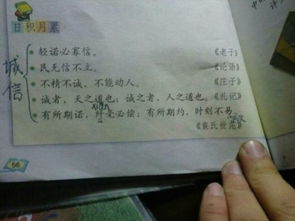 日积月累
轻诺必寡信。 《老子》
民无信不立。 《论语》
不精不诚，不能动人。 《庄子》
诚者，天之道也；诚之者，人之道也。《礼记》
有所期诺，纤毫必偿；有所期约，时刻不易。
《袁氏世范》
诚信
xiān